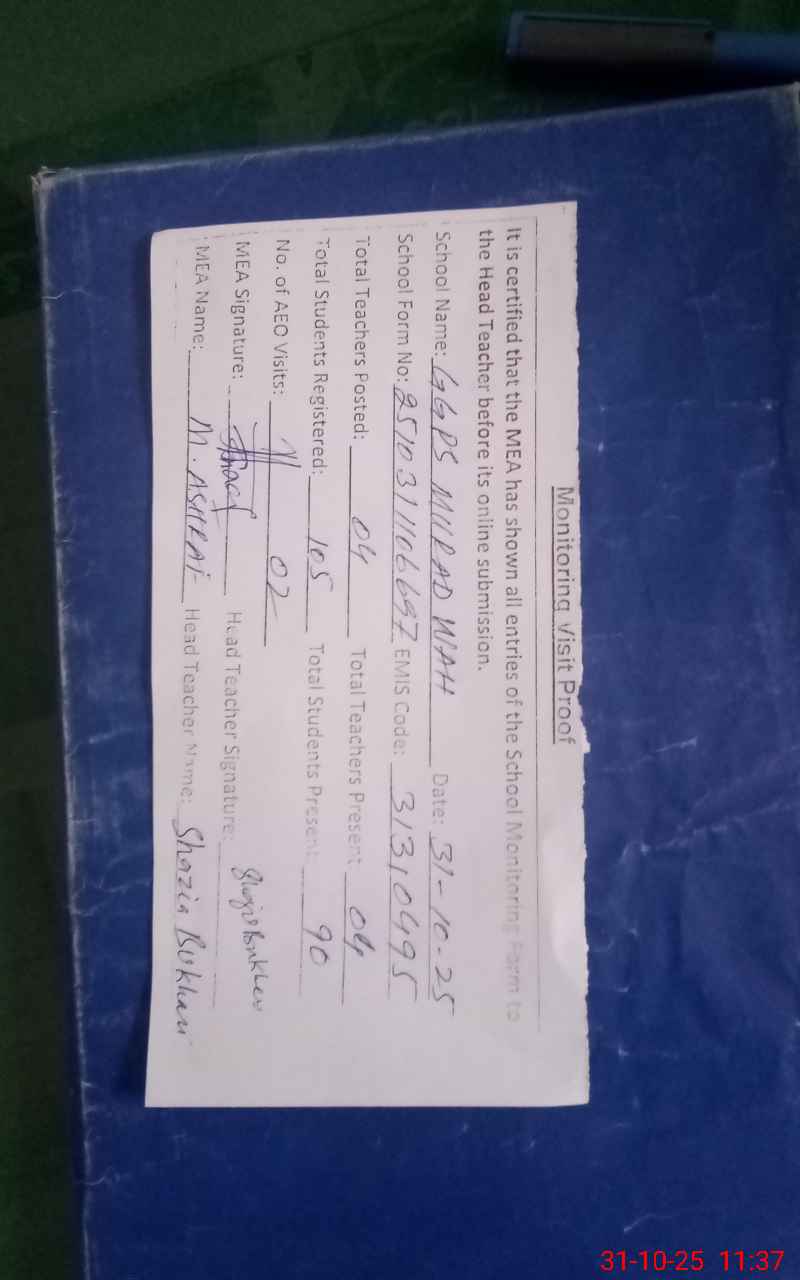 Monitoring Visit Proof
It is certified that the MEA has shown all entries of the School Monitoring Form to
the Head Teacher before its online submission.
School Name: GGPS MURAD WAH Date: 31-10-25
School Form No: 2510311106697 EMIS Code: 31310495
Total Teachers Posted: 04 Total Teachers Present 04
Total Students Registered: 105 Total Students Present: 90
No. of AEO Visits: 02
MEA Signature: Head Teacher Signature: Shazia Bukhari
MEA Name: M. ASHRAF Head Teacher Name: Shazia Bukhari
31-10-25 11:37